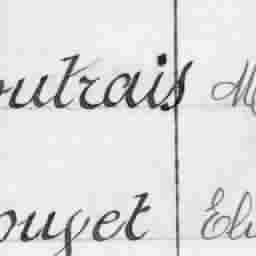 outrais M
ouget Eli